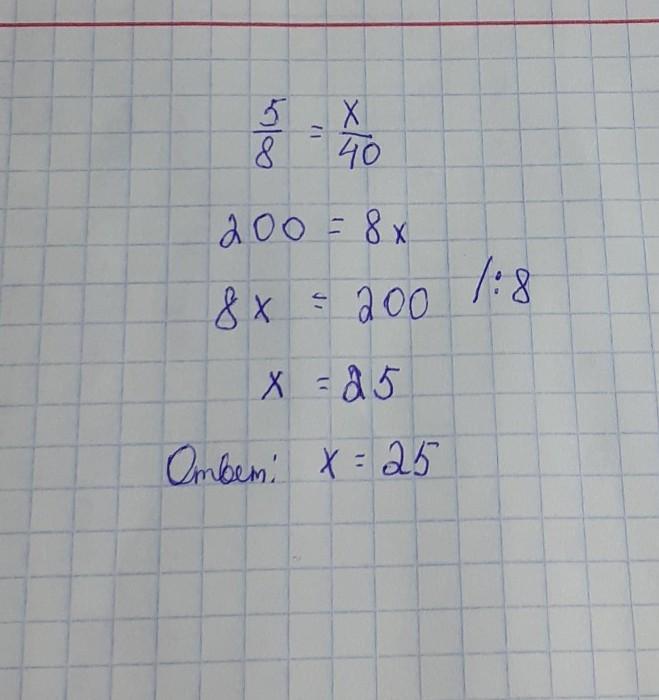 5/8 = x/40
200 = 8x
8x = 200 /:8
x = 25
Ответ: x = 25